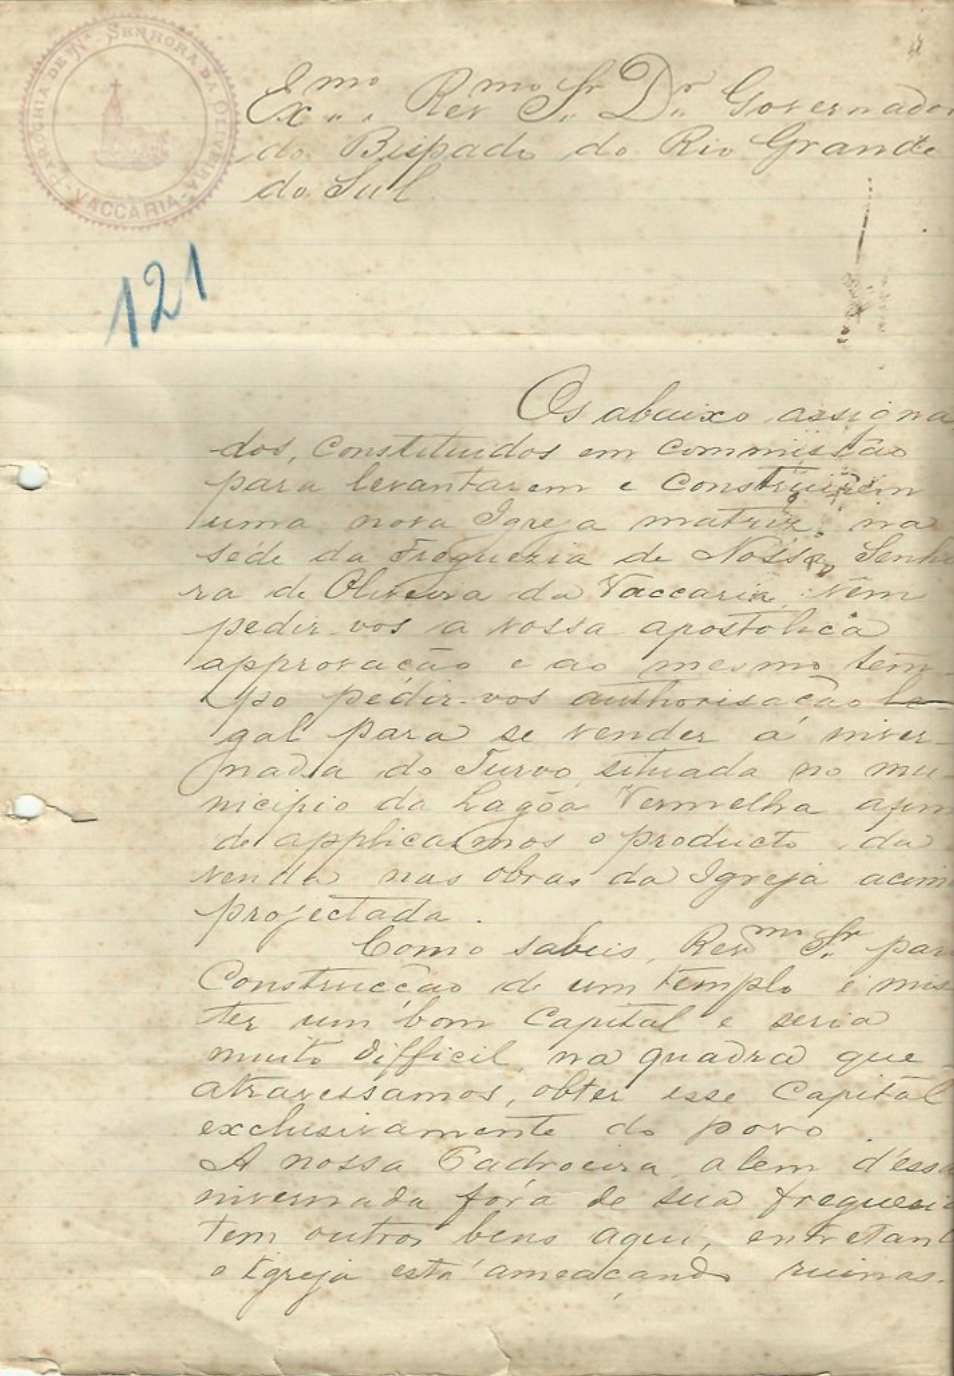 PAROCHIA DE Nª SENHORA DA OLIVEIRA
-VACCARIA-
Exmo. Revmo Sr. Dr. Governador
do Bispado do Rio Grande
do Sul
121
Os abaixo assigna
dos, constituidos em commissão
para levantarem e construirem
uma nova Igreja matriz, na
séde da Freguezia de Nossa Senho
ra de Oliveira da Vaccaria vêm
pedir-vos a vossa apostolica
approvação e ao mesmo tem-
po pedir-vos authorisação le-
gal para se vender á inver-
nada do Turvo, situada no mu-
nicipio da Lagôa Vermelha afim
de applicarmos o producto da
venda nas obras da Igreja acima
projectada.
Como sabeis, Revmo Sr. para
Construcção de um templo é mis
ter um bom Capital e seria
muito difficil, na quadra que
atravessamos, obter esse Capital
exclusivamente do povo.
A nossa Padroeira alem d'essa
invernada fóra de sua freguesia
tem outros bens aqui, entretanto
a Igreja está ameaçando ruinas.